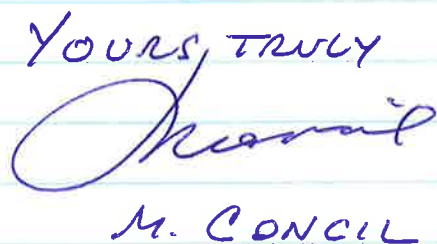 YOURS, TRULY
M. CONCIL